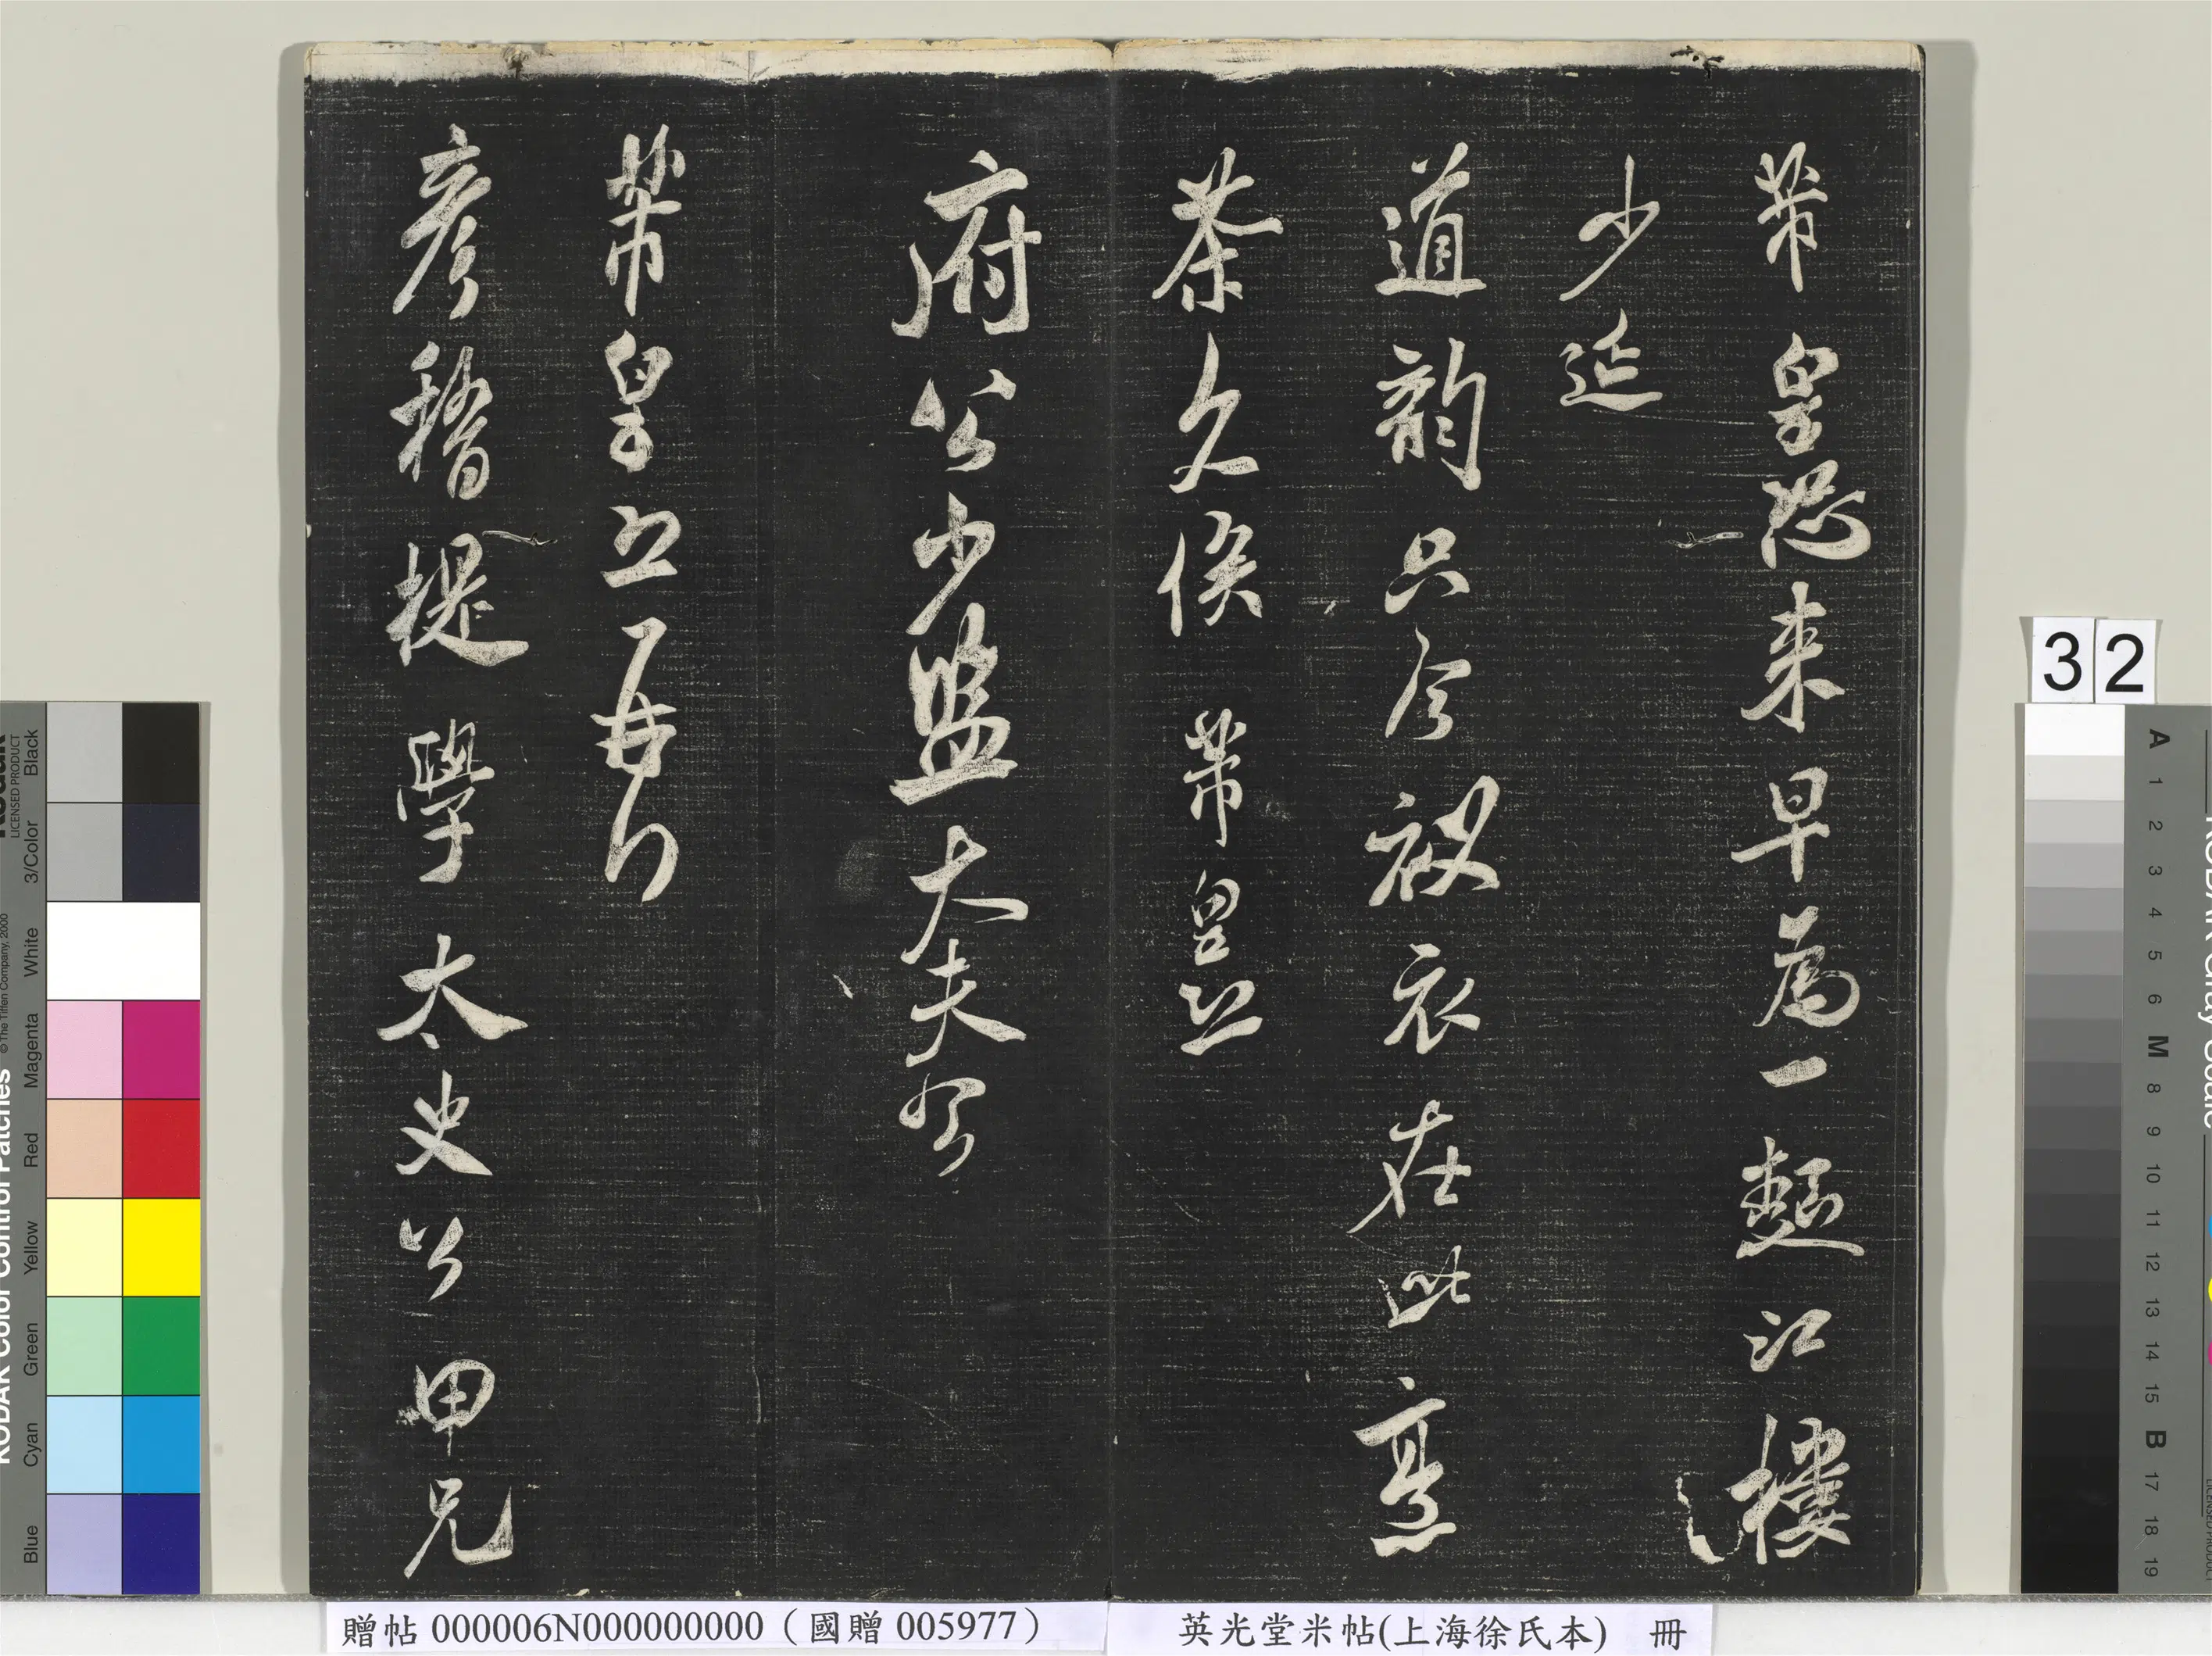 芾皇恐来早為一麺江樓
少延
道韵只今衩衣在此烹
茶久俟 芾皇恐
府公少監大夫
芾皇恐再拜
彦稽提學太史公甲兄
32
贈帖 000006N000000000(國贈 005977)
英光堂米帖(上海徐氏本) 冊
Black
3/Color
White
Magenta
Red
Yellow
Green
Cyan
Blue
LICENSED PRODUCT
© The Tiffen Company, 2000
KODAK Color Control Patches
A 1 2 3 4 5 6 M 8 9 10 11 12 13 14 15 B 17 18 19